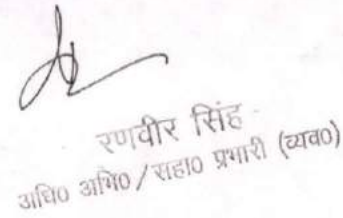 रणवीर सिंह
अधि० अभि०/सहा० प्रभारी (व्यव०)